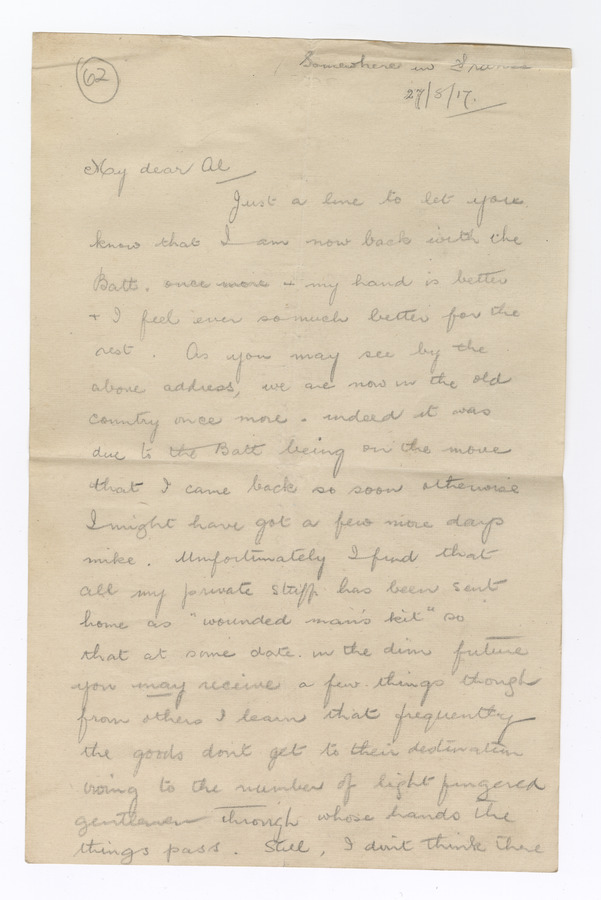 62
Somewhere in France
27/8/17.
My dear Al
Just a line to let you
know that I am now back with the
Batt. once more + my hand is better
+ I feel ever so much better for the
rest. As you may see by the
above address, we are now in the old
country once more. indeed it was
due to the Batt being on the move
that I came back so soon otherwise
I might have got a few more days
mike. Unfortunately I find that
all my private stuff has been sent
home as "wounded man's kit" so
that at some date in the dim future
you may receive a few things though
from others I learn that frequently
the goods dont get to their destination
owing to the number of light fingered
gentlemen through whose hands the
things pass. Still, I don't think there